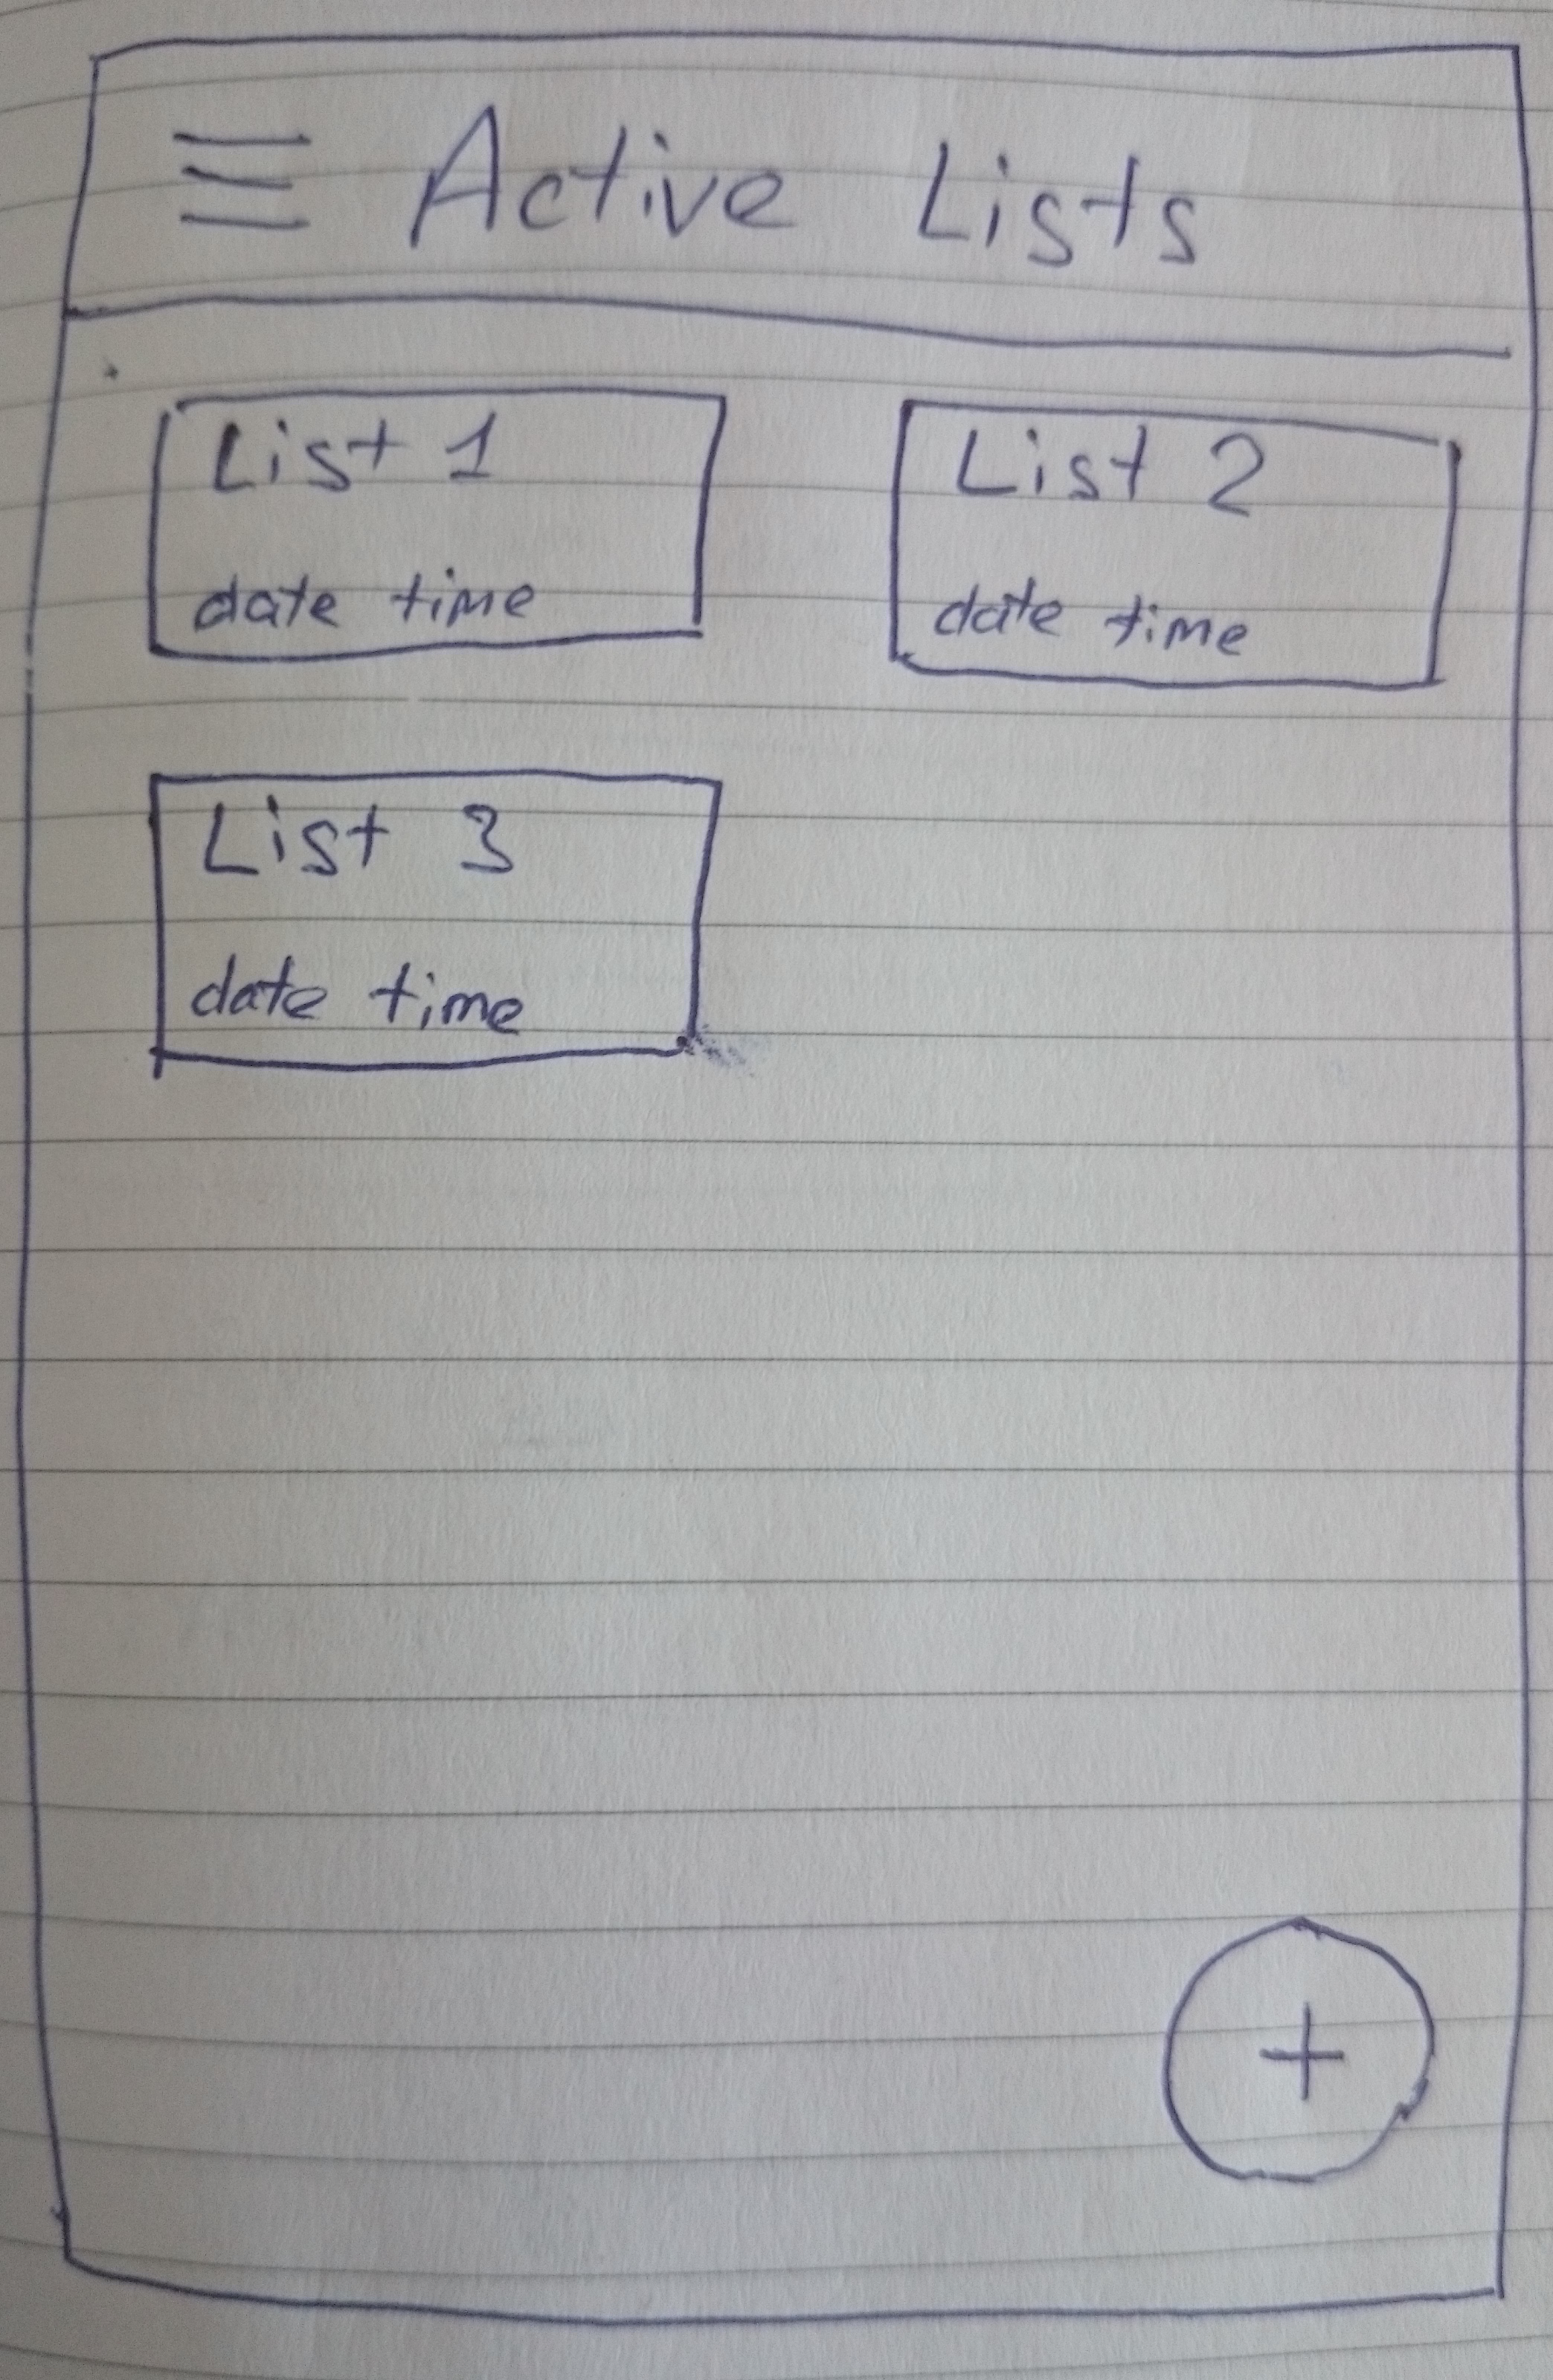 Active Lists
List 1
date time
List 2
date time
List 3
date time
+